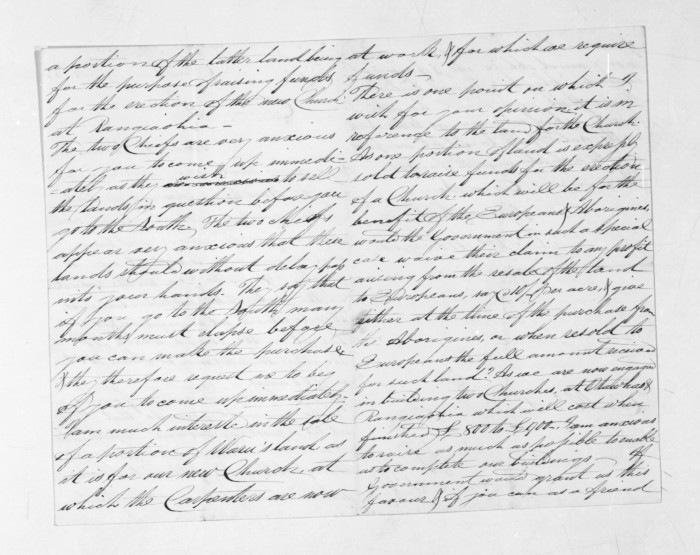 a portion of the latter land being
for the purpose of raising funds
for the erection of the new Church
at Rangiaohia -
The two Chiefs are very anxious
for you to come up immedi-
atel as they wish to sell
the lands in question before you
go to the South. The two chiefs
appear very anxious that these
lands should without delay pass
into your hands. They say that
if you go to the South many
months must elapse before
you can make the purchase
& they therefore request me to beg
of you to come up immediately.
I am much interested in the sale
of a portion of Waru's land as
it is for our new Church at
which the Carpenters are now
at work, & for which we require
funds -
There is one point on which I
wish for your opinion it is in
reference to the land for the Church.
As one portion of land is expressly
sold to raise funds for the erection
of a Church which will be for the
benefit of the Europeans & Aborigines,
would the Government in such a special
case waive their claim to any profit
arising from the resale of the land
to Europeans, say 10/- per acre, & give
either at the time of the purchase from
the Aborigines, or when resold to
Europeans the full amount received
for such land? As we are now engaged
in building two Churches, at &
Rangiaohia which will cost when
finished £800 to £900. I am anxious
to raise as much as possible to enable
us to complete our buildings. If
Government would grant us this
favour & if you can as a friend